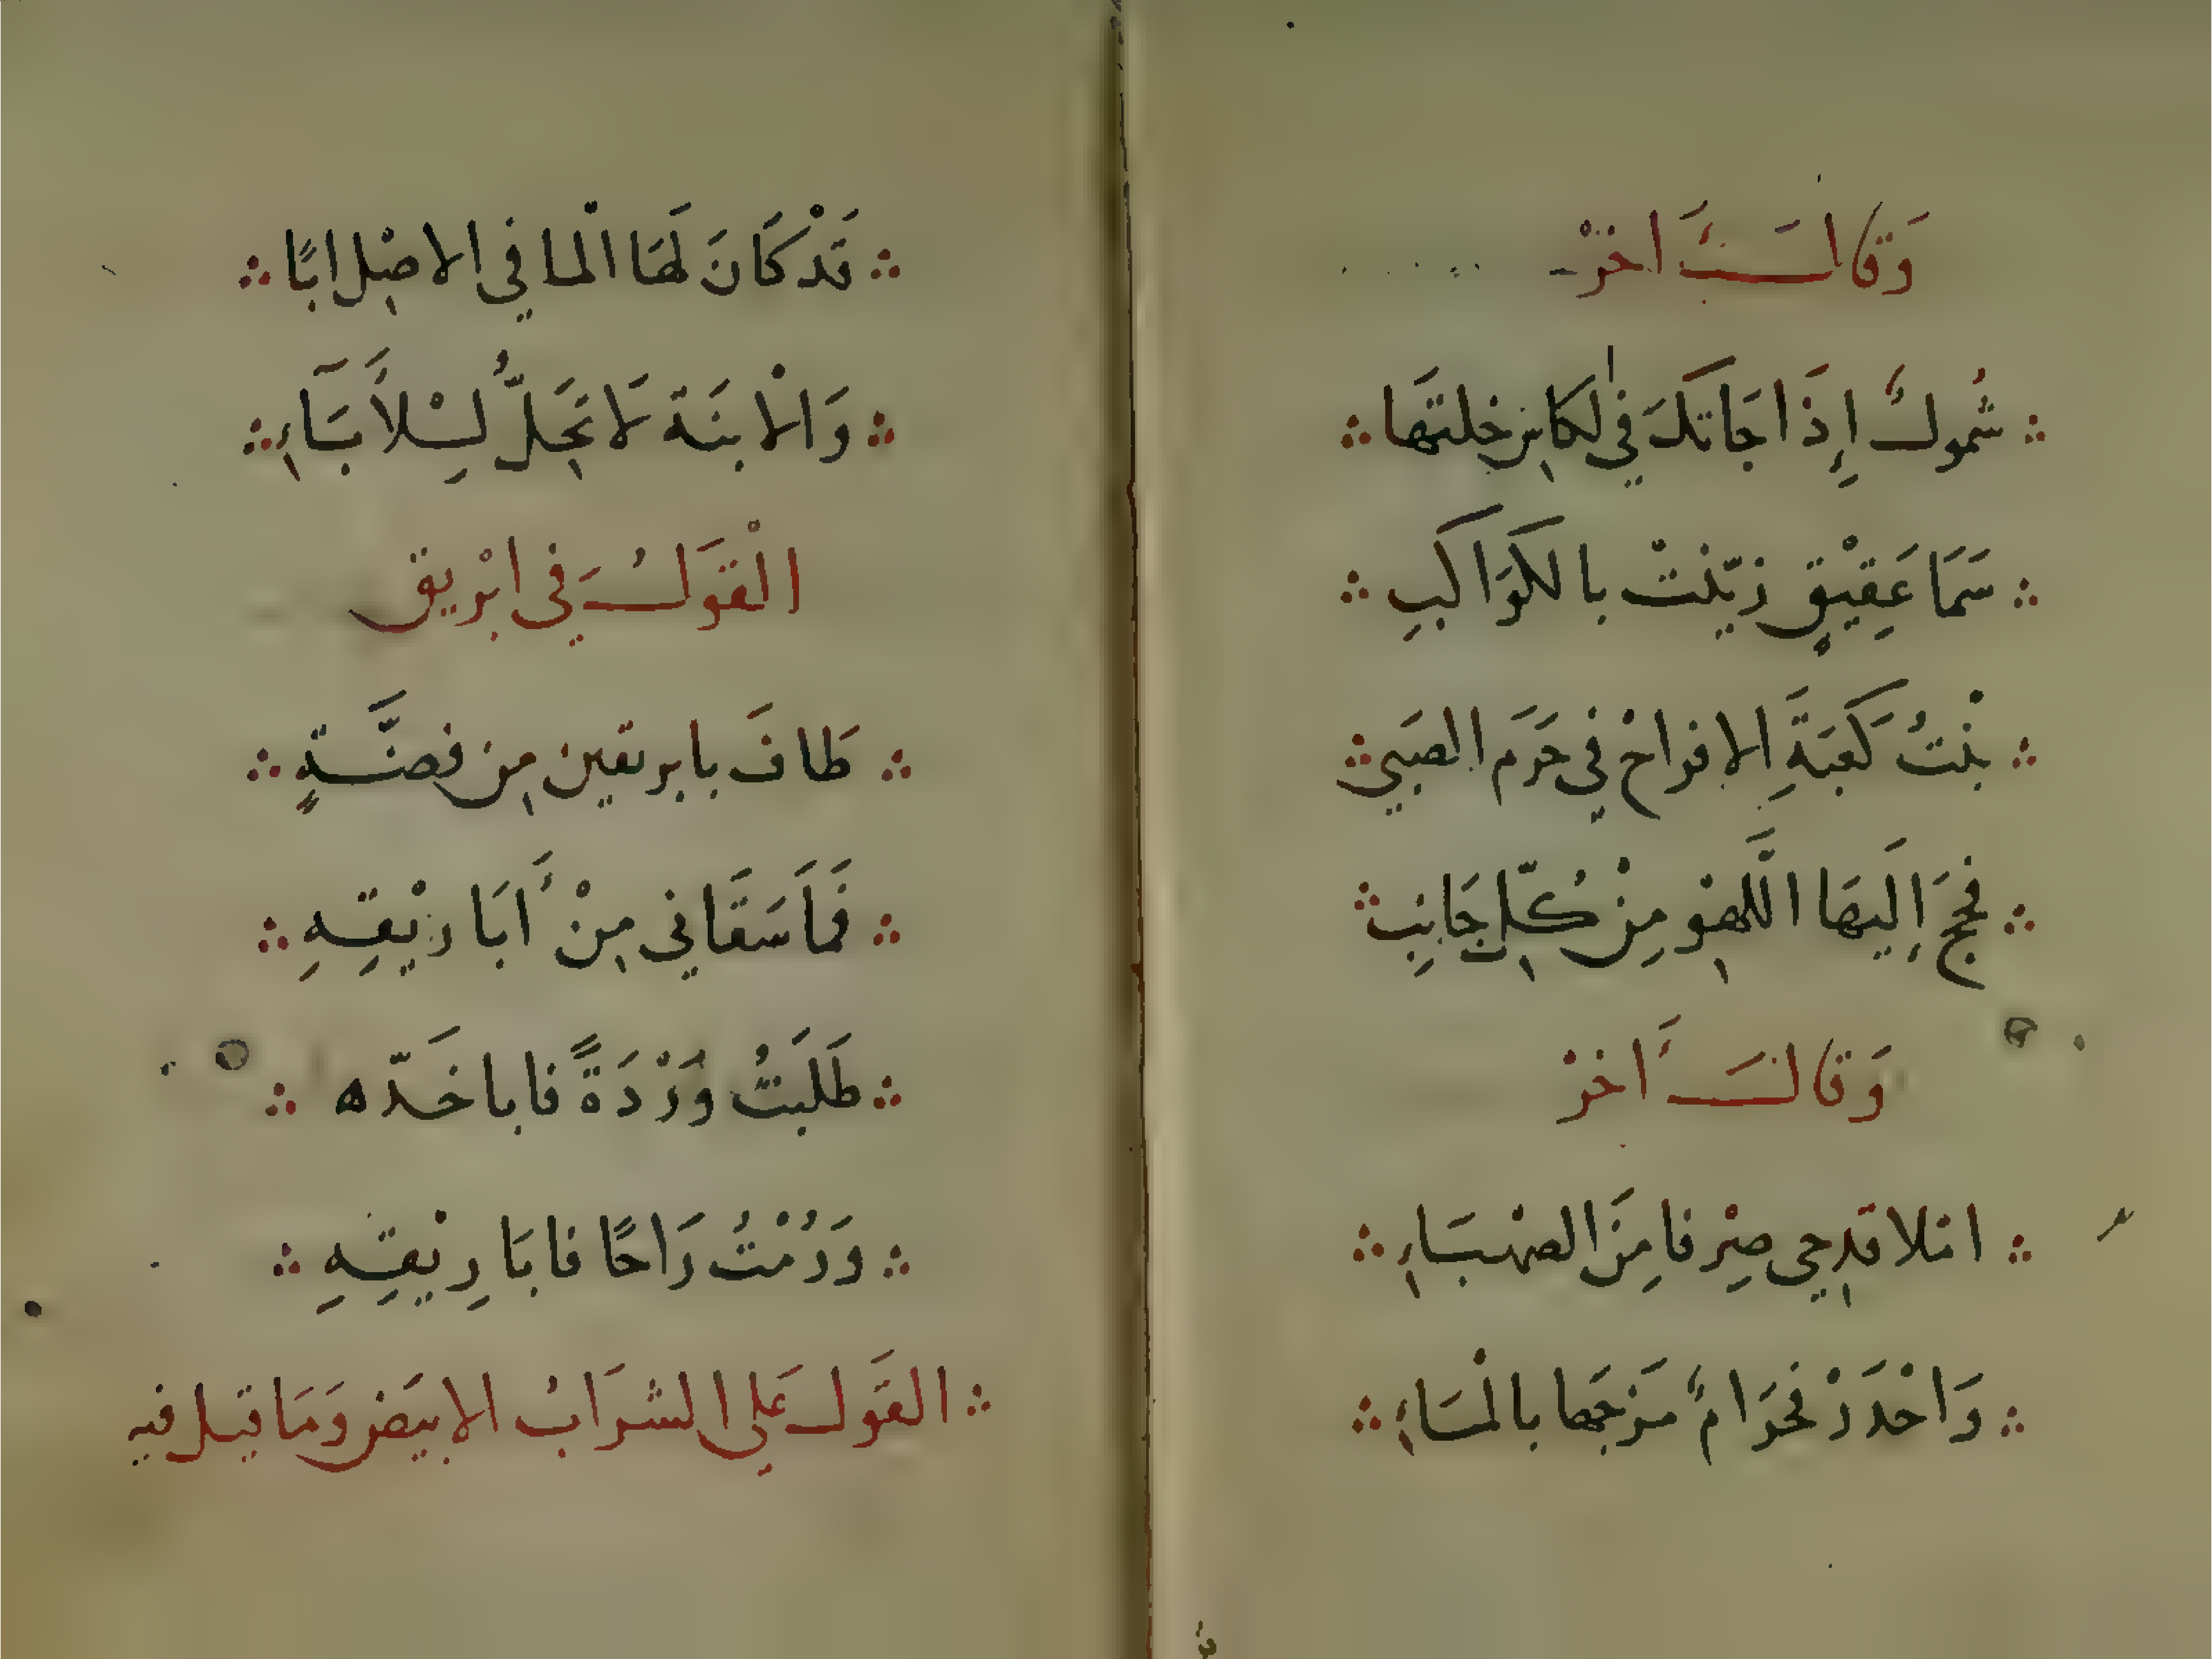 وَقَالَ أَخَرْ
شُمولٌ إِذَا جَاتكَ فِي لكَاسِ خلتَهَا
سَمَا عَقِيْقٍ زيّنتْ بالكَوَاكبِ
بْنتُ كَعبَةَِ الافراحْ في حَرَم الصَبي
فحجَ إِلَيهَا اللَّهوِ مِنْ كُلِّ جَانِبِ
وَقَالَ أَخرْ
امْلا قدحِي صِرْفا مِنَ الصهْبَاءِ
وَاحْدَرْ فحَوَامٌ مَزجها بالْمَاءِ
قَدْ كَانَ لَهَا الْما في الاصْلِ ابًا
وَالْابنَة لَا تَحِلُّ لِسْلأَبَآءِ
الْقوَلُ في ابْريق
طَافَ بابريقين مِن فضَّةٍ
فمَاَ سَقَاني مِنْ أَبَا رِيْقِهِ
طَلَبتُ وَرْدَةً فابا خَدّه
وَرُمْتُ رَاحًا فابَا رِيْقِهِ
القَول عَلى الشرَابُ الابيَض وَمَا قيل فيه